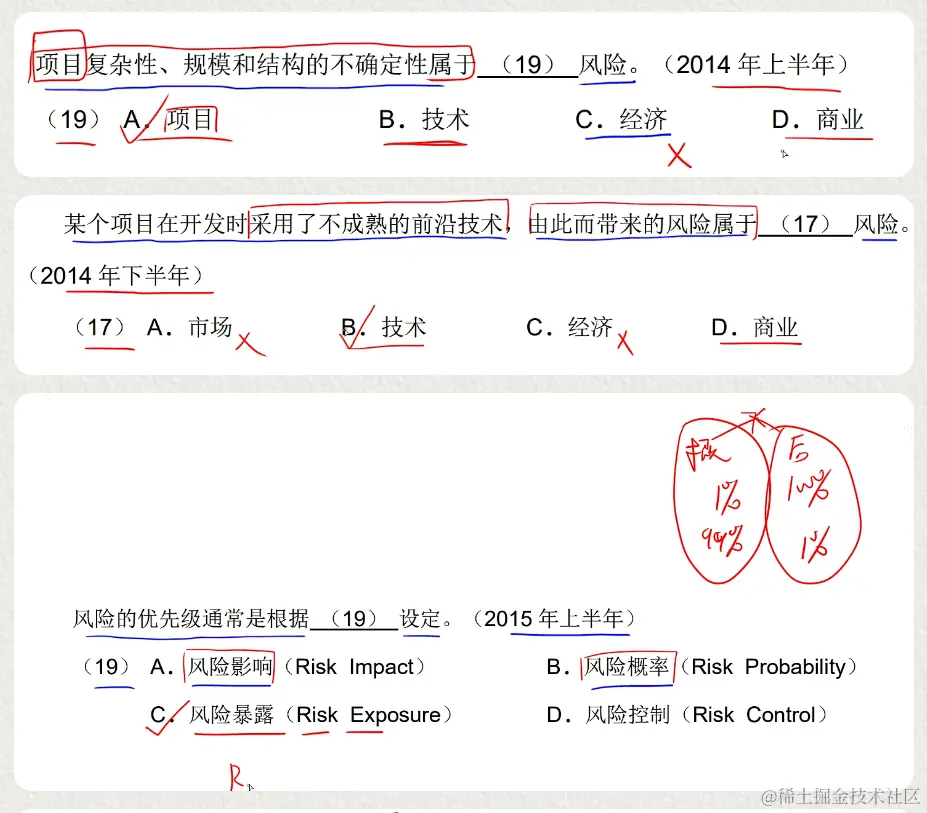 项目复杂性、规模和结构的不确定性属于 （19） 风险。（2014 年上半年）
（19） A．项目 B．技术 C．经济 D．商业
某个项目在开发时采用了不成熟的前沿技术，由此而带来的风险属于 （17） 风险。
（2014 年下半年）
（17） A．市场 B．技术 C．经济 D．商业
概 后
1% 100%
99% 1%
风险的优先级通常是根据 （19） 设定。（2015 年上半年）
（19） A．风险影响（Risk Impact） B．风险概率（Risk Probability）
C．风险暴露（Risk Exposure） D．风险控制（Risk Control）
R
@稀土掘金技术社区